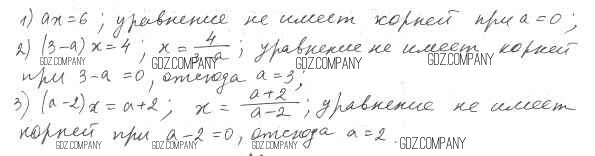 1) ax = 6 ; уравнение не имеет корней при a = 0 ;
2) (3-a) x = 4 ; x = 4/(3-a) ; уравнение не имеет корней
GDZ.COMPANY GDZ.COMPANY GDZ.COMPANY
при 3-a = 0, отсюда a = 3 ;
3) (a-2) x = a+2 ; x = (a+2)/(a-2) ; уравнение не имеет
корней при a-2 = 0, отсюда a = 2 .
GDZ.COMPANY GDZ.COMPANY GDZ.COMPANY